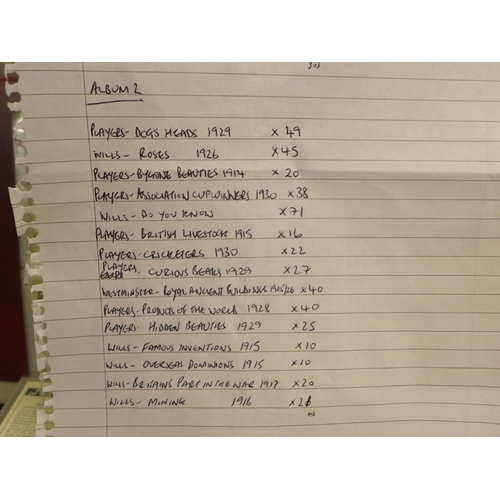 ALBUM 2
PLAYERS- DOGS HEADS 1929 x 49
WILLS - ROSES 1926 x 45
PLAYERS- BYGONE BEAUTIES 1914 x 20
PLAYERS- ASSOCIATION CUP WINNERS 1930 x 38
WILLS - DO YOU KNOW x 71
PLAYERS- BRITISH LIVESTOCK 1915 x 16
PLAYERS- CRICKETERS 1930 x 22
PLAYERS CURIOUS BEAKS 1929 x 27
WESTMINSTER- ROYAL ANCIENT BUILDINGS 1925/26 x 40
PLAYERS- PRODUCTS OF THE WORLD 1928 x 40
PLAYERS- HIDDEN BEAUTIES 1929 x 25
WILLS - FAMOUS INVENTIONS 1915 x 10
WILLS - OVERSEAS DOMINIONS 1915 x 10
WILLS- BRITAINS PART IN THE WAR 1917 x 20
WILLS - MINING 1916 x 26